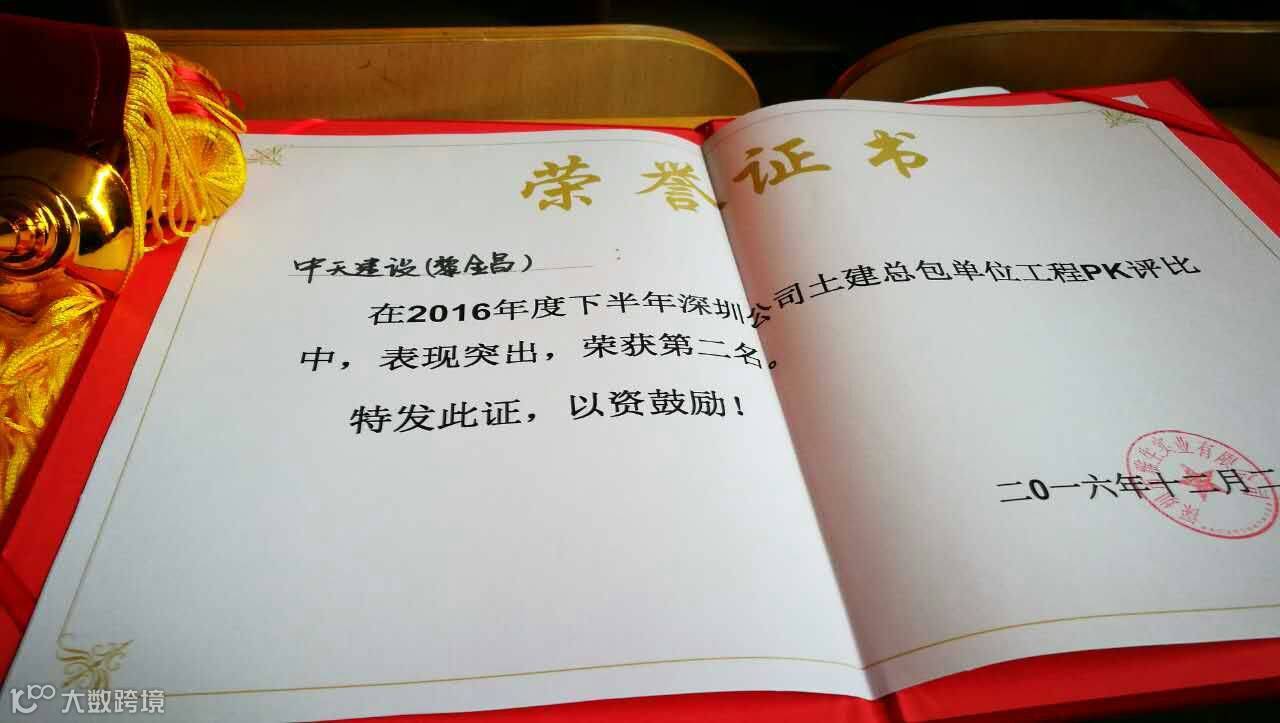 荣誉证书
中天建设(黎金昌)
在2016年度下半年深圳公司土建总包单位工程PK评比
中，表现突出，荣获第二名。
特发此证，以资鼓励！
二0一六年十二月二
实业有限
大数跨境